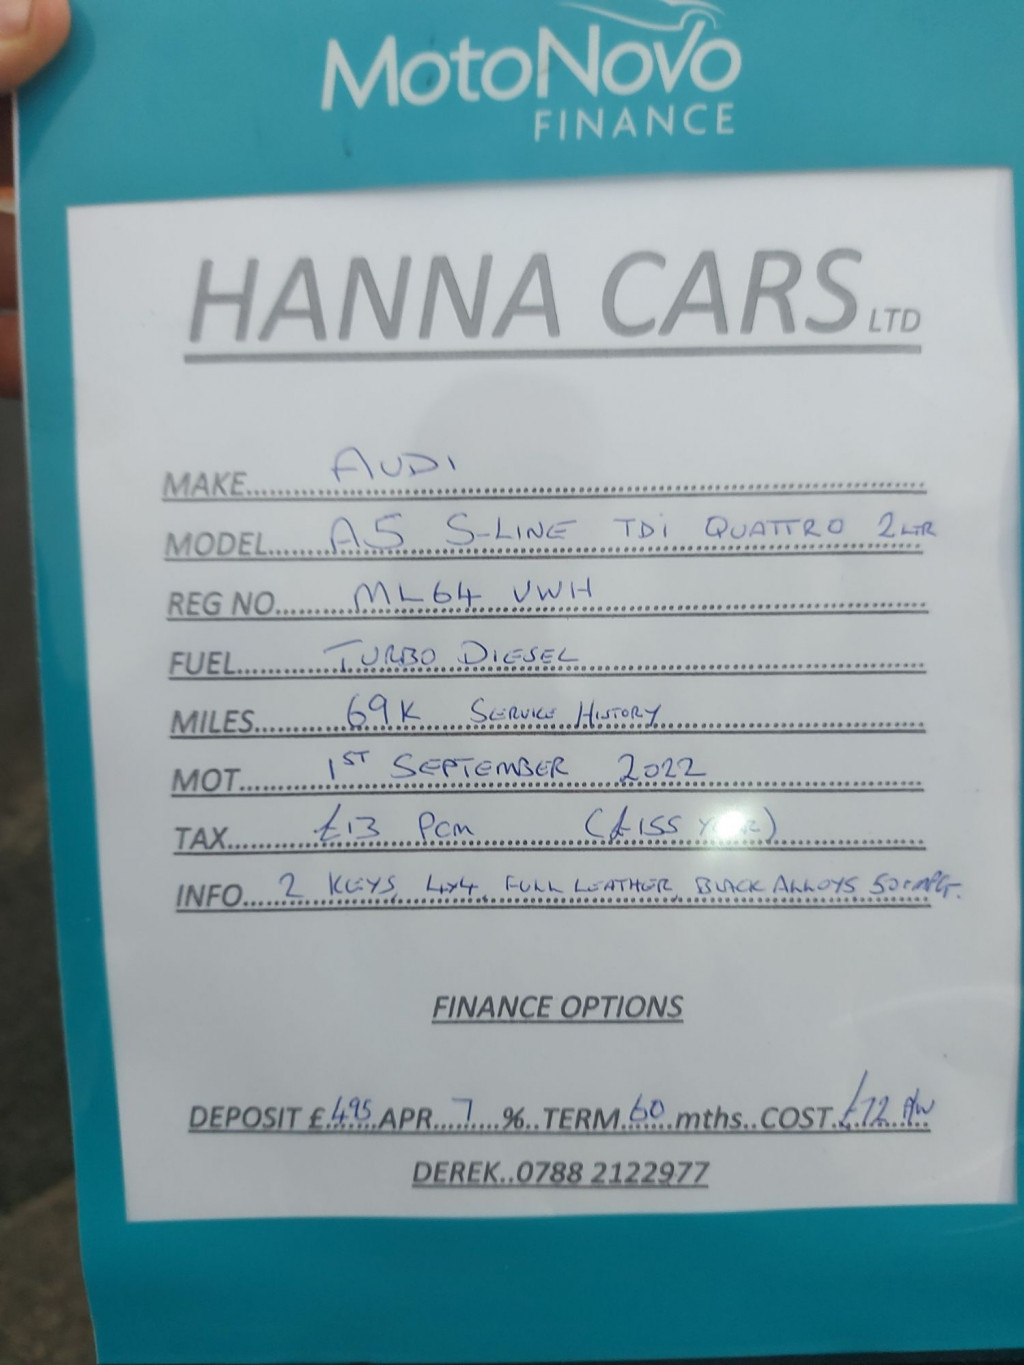 MotoNovo
FINANCE
HANNA CARS LTD
MAKE.......AUDI
MODEL.......A5 S-LINE TDi QUATTRO 2LTR
REG NO.......ML64 VWH
FUEL.......TURBO DIESEL
MILES.......69K SERVICE HISTORY
MOT.......1ST SEPTEMBER 2022
TAX.......£13 PCM (£155 YEAR)
INFO.......2 KEYS, 4x4, FULL LEATHER, BLACK ALLOYS 50+MPG.
FINANCE OPTIONS
DEPOSIT £.495 APR..7..%..TERM.60..mths..COST.£72 P/W
DEREK..0788 2122977